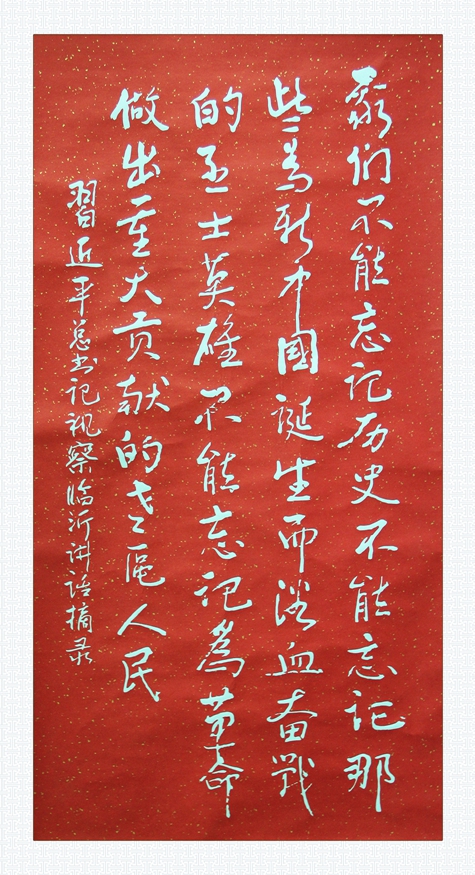 我们不能忘记历史不能忘记那
些为新中國诞生而浴血奋戰
的烈士英雄不能忘记為革命
做出重大贡献的老區人民
習近平总书记视察临沂讲话摘录